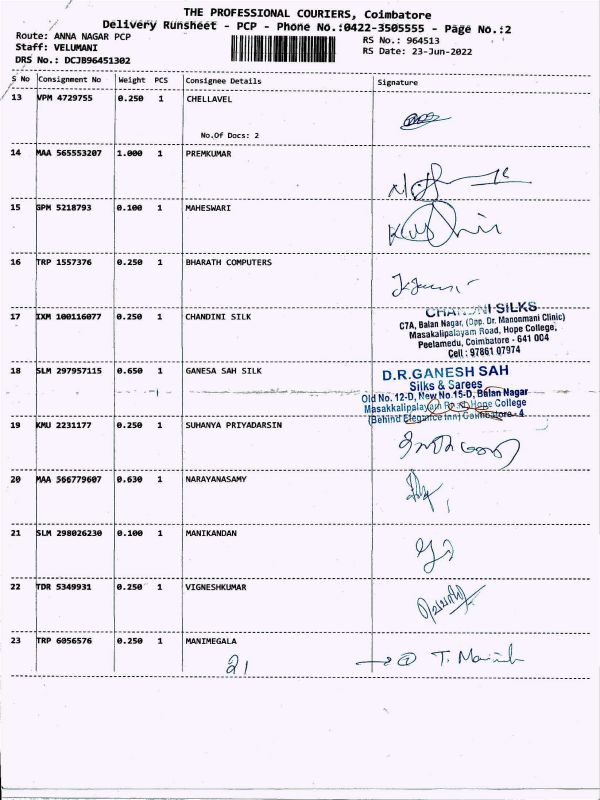 THE PROFESSIONAL COURIERS, Coimbatore
Delivery Runsheet - PCP - Phone No.:0422-3505555 - Page No.:2
Route: ANNA NAGAR PCP
RS No.: 964513
Staff: VELUMANI
RS Date: 23-Jun-2022
DRS No.: DCJB96451302
S No Consignment No Weight PCS Consignee Details Signature
13 VPM 4729755 0.250 1 CHELLAVEL
No.Of Docs: 2
14 MAA 565553207 1.000 1 PREMKUMAR
15 GPM 5218793 0.100 1 MAHESWARI
16 TRP 1557376 0.250 1 BHARATH COMPUTERS
17 IXM 100116077 0.250 1 CHANDINI SILK
CHANDNI SILKS
C7A, Balan Nagar, (Opp. Dr. Manonmani Clinic)
Masakalipalayam Road, Hope College,
Peelamedu, Coimbatore - 641 004
Cell : 97861 07974
18 SLM 297957115 0.650 1 GANESA SAH SILK
D.R.GANESH SAH
Silks & Sarees
Old No. 12-D, New No.15-D, Balan Nagar
Masakkalipalayam Road, Hope College
(Behind Elegance Inn) Coimbatore - 4
19 KMU 2231177 0.250 1 SUHANYA PRIYADARSIN
20 MAA 566779607 0.630 1 NARAYANASAMY
21 SLM 298026230 0.100 1 MANIKANDAN
22 TDR 5349931 0.250 1 VIGNESHKUMAR
23 TRP 6056576 0.250 1 MANIMEGALA
21